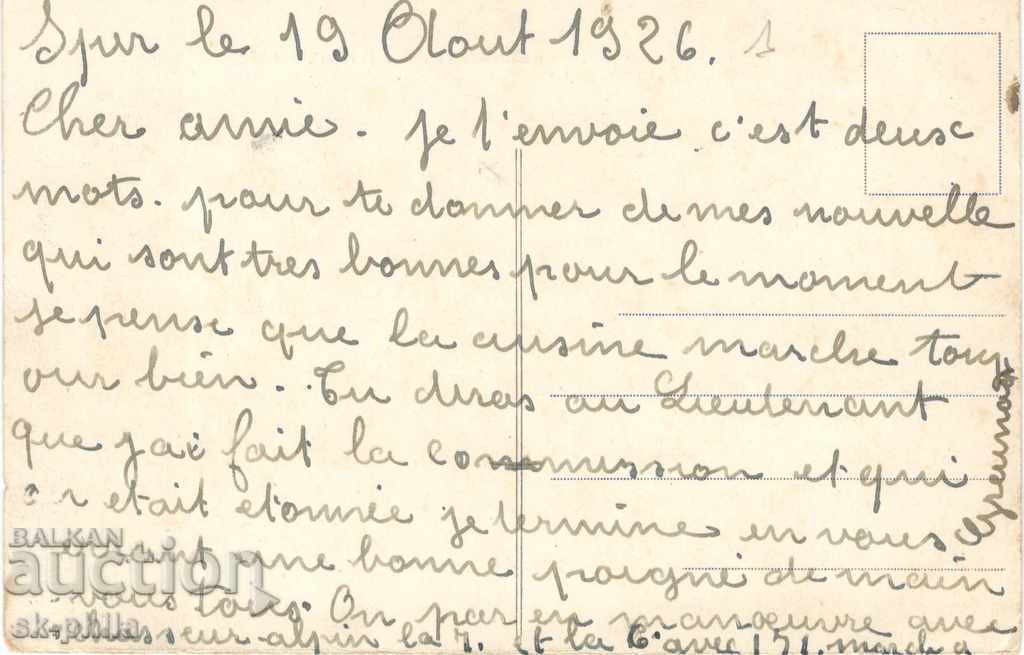 Spur le 19 Aout 1926. 1
Cher amie. je t'envoie c'est deux
mots. pour te donner de mes nouvelle
qui sont tres bonnes pour le moment
je pense que la cusine marche touj
our bien. Tu diras au Lieutenant
que j'ai fait la commission et qui
etait etonnée je termine en vous
une bonne poigné de main
vous tous. On par en manœuvre avec
alpin la 7. et la 6e avec 171. march
BALKAN
auction
sk-phila